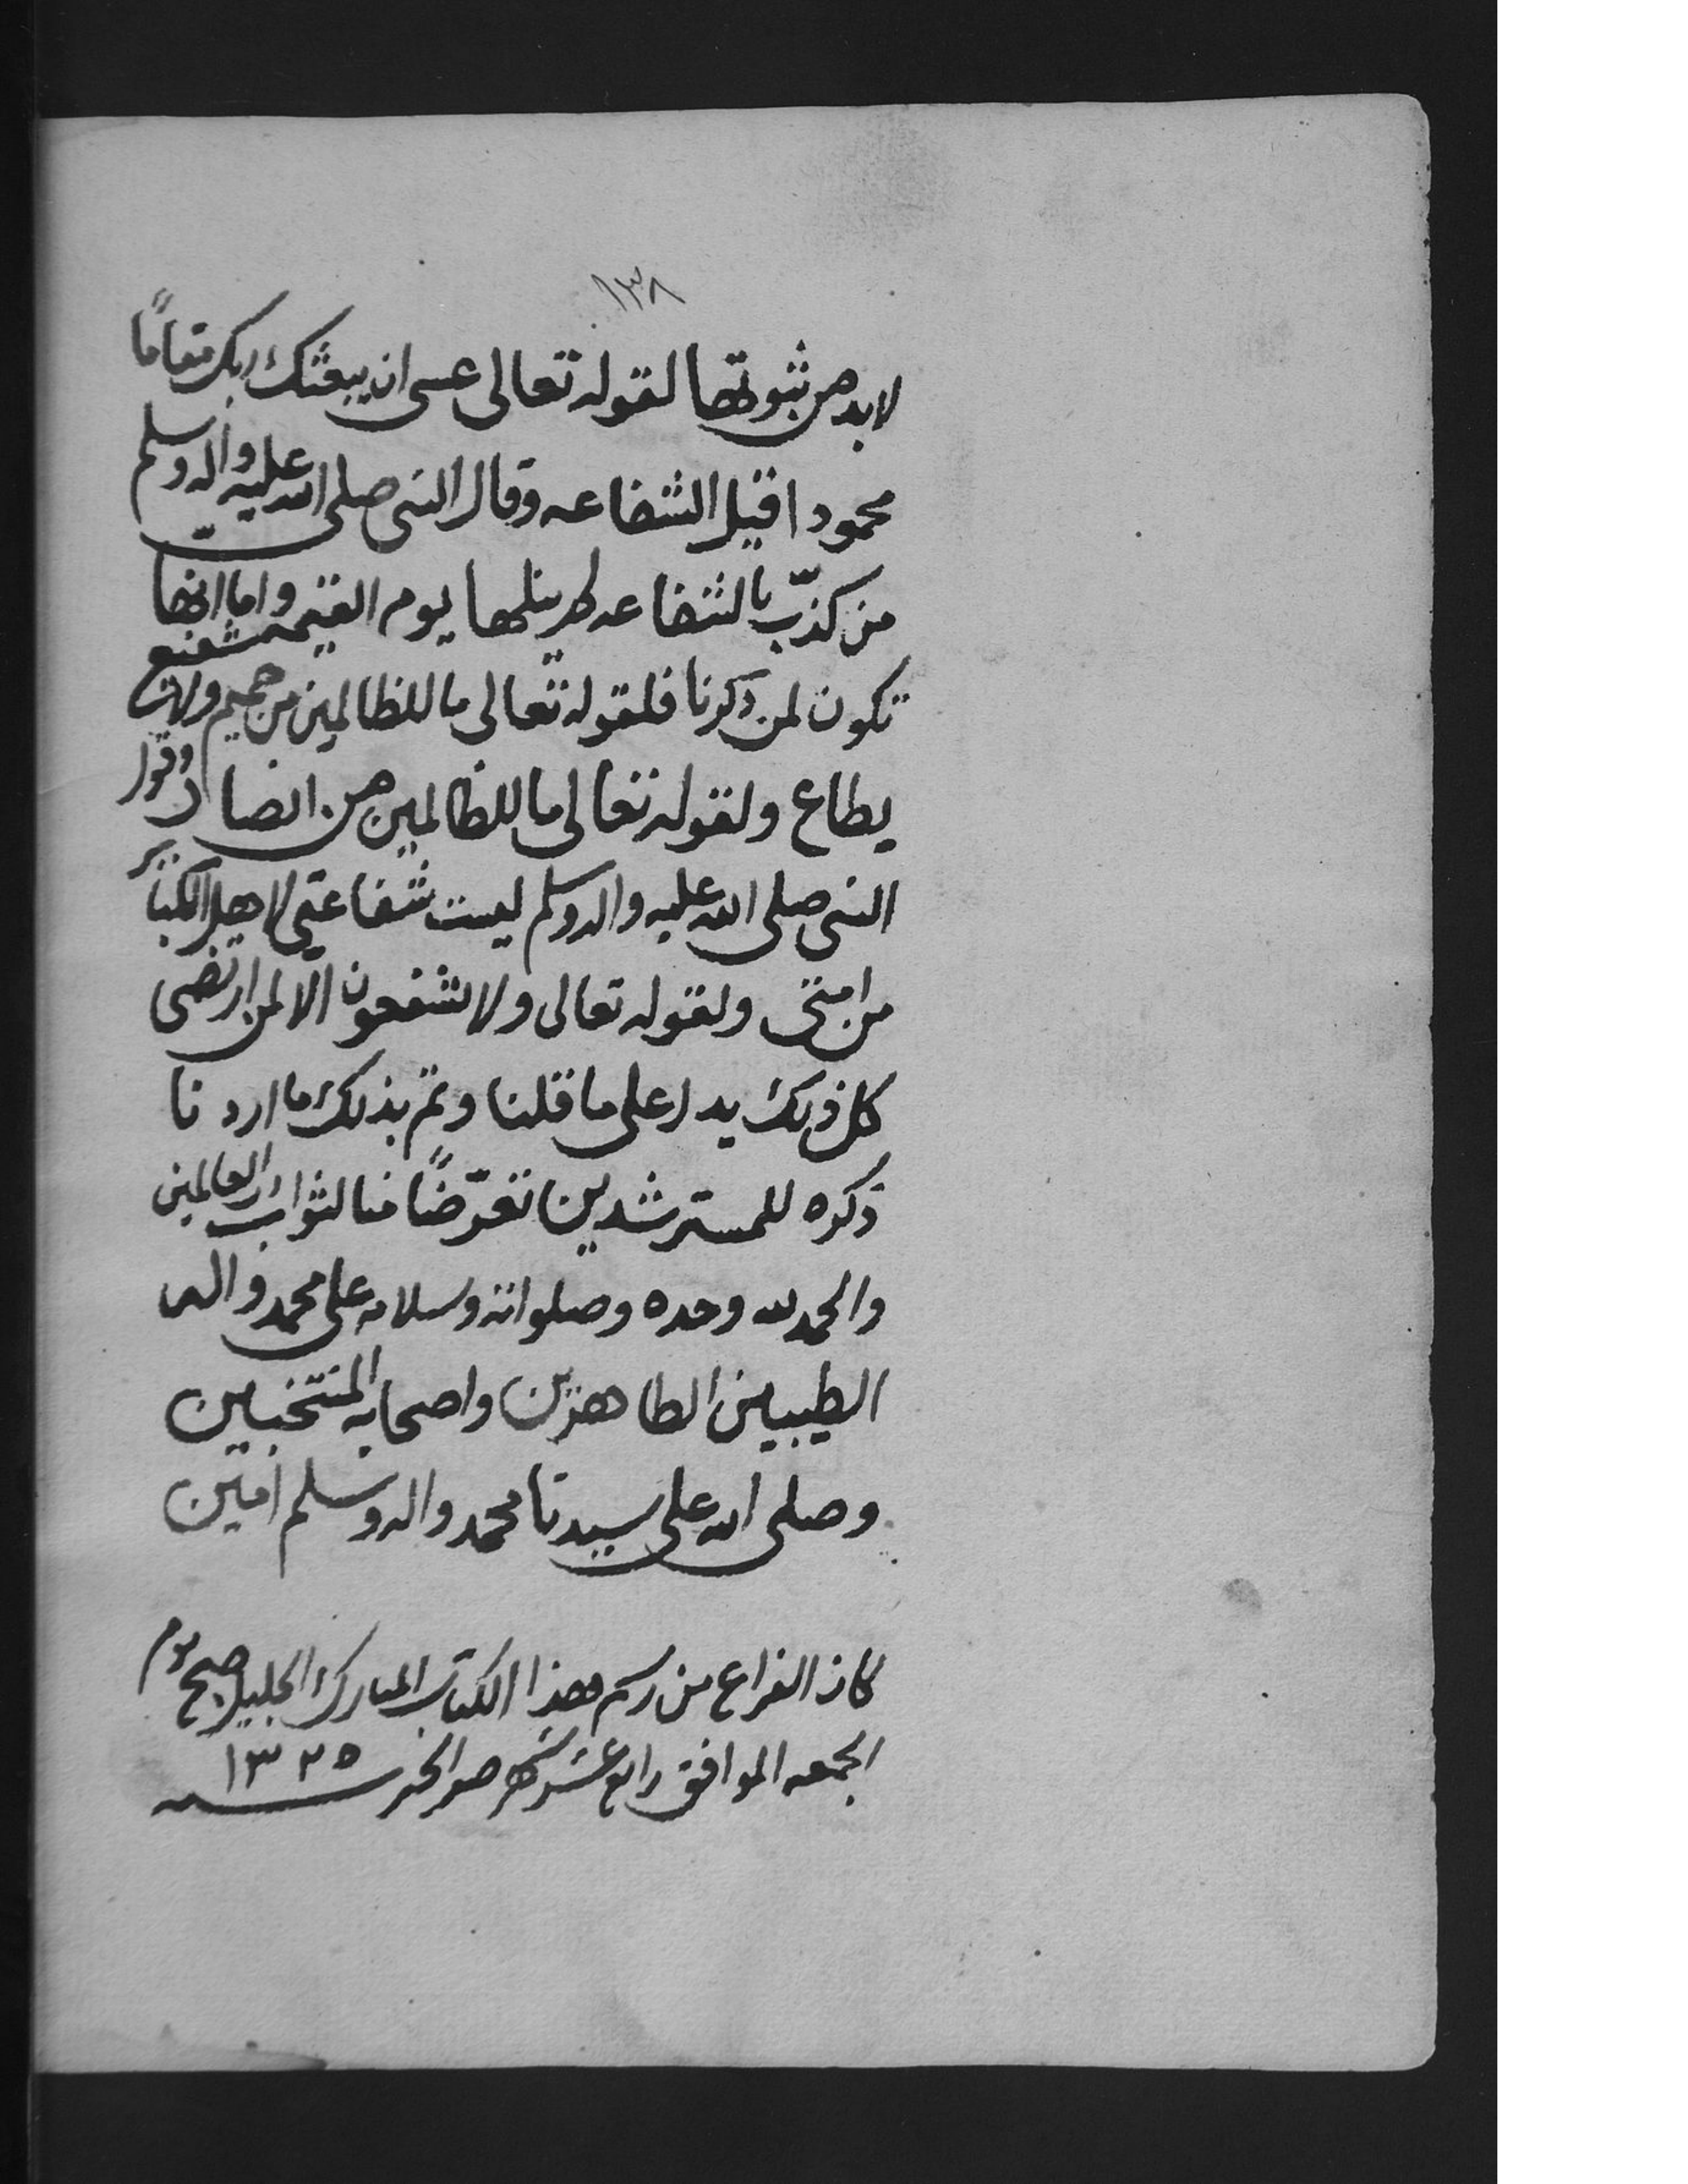 ١٣٨
لابد من ثبوتها لقوله تعالى عسى ان يبعثك ربك مقامًا
محمودا قيل الشفاعه وقال النبي صلى الله عليه واله وسلم
من كذّب بالشفاعه لم ينلها يوم القيمه واما انها
تكون لمن ذكرنا فلقوله تعالى ما للظالمين من حميم ولا شفيع
يطاع ولقوله تعالى ما للظالمين من انصار وقول
النبي صلى الله عليه واله وسلم ليست شفاعتي لاهل الكبائر
من امتي ولقوله تعالى ولا يشفعون الا لمن ارتضى
كل ذلك يدل على ما قلنا وتم بذلك ما اردنا
ذكره للمسترشدين تعرّضًا منا لثواب رب العالمين
والحمد لله وحده وصلواته وسلامه على محمد واله
الطيبين الطاهرين واصحابه المنتخبين
وصلى الله على سيدنا محمد واله وسلم امين
كان الفراغ من رسم هذا الكتاب المبارك الجليل صبح يوم
الجمعه الموافق رابع عشر شهر صفر الخير سنه ١٣٢٥